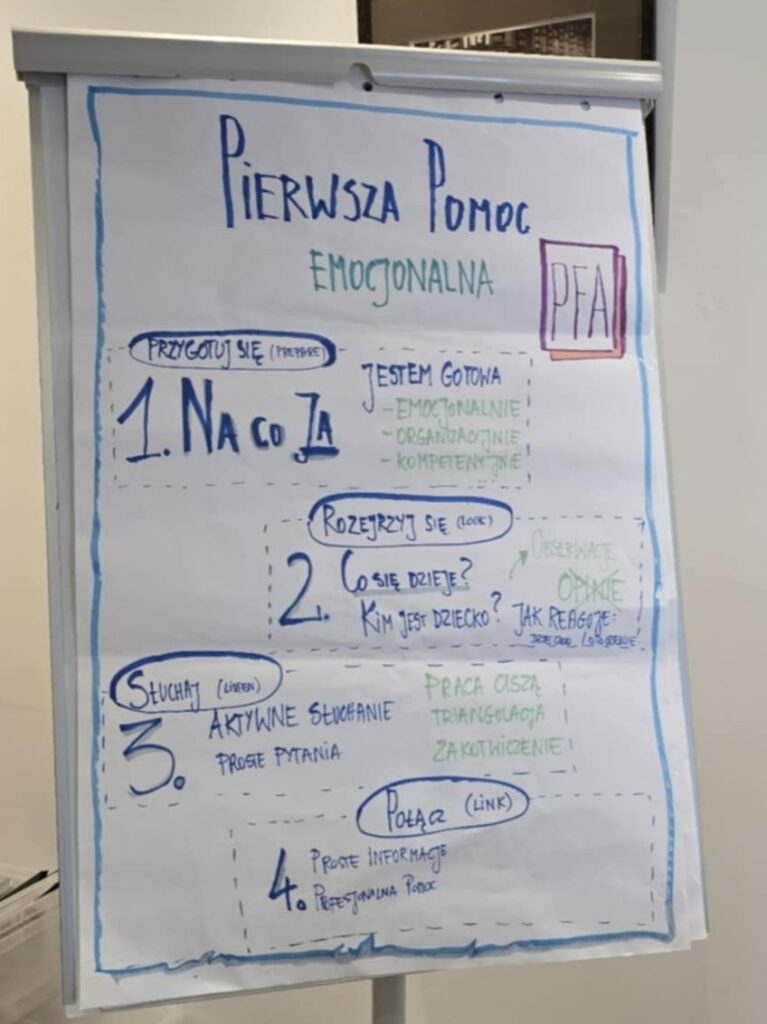 PIERWSZA POMOC
EMOCJONALNA
PFA
PRZYGOTUJ SIĘ (PREPARE)
1. NA CO JA
JESTEM GOTOWA
- EMOCJONALNIE
- ORGANIZACYJNIE
- KOMPETENCYJNIE
ROZEJRZYJ SIĘ (LOOK)
2. CO SIĘ DZIEJE?
KIM JEST DZIECKO?
OBSERWACJE
OPINIE
JAK REAGUJE:
DZIECKO
SŁUCHAJ (LISTEN)
3. AKTYWNE SŁUCHANIE
PROSTE PYTANIA
PRACA CISZĄ
TRIANGULACJA
ZAKOTWICZENIE
POŁĄCZ (LINK)
4. PROSTE INFORMACJE
PROFESJONALNA POMOC